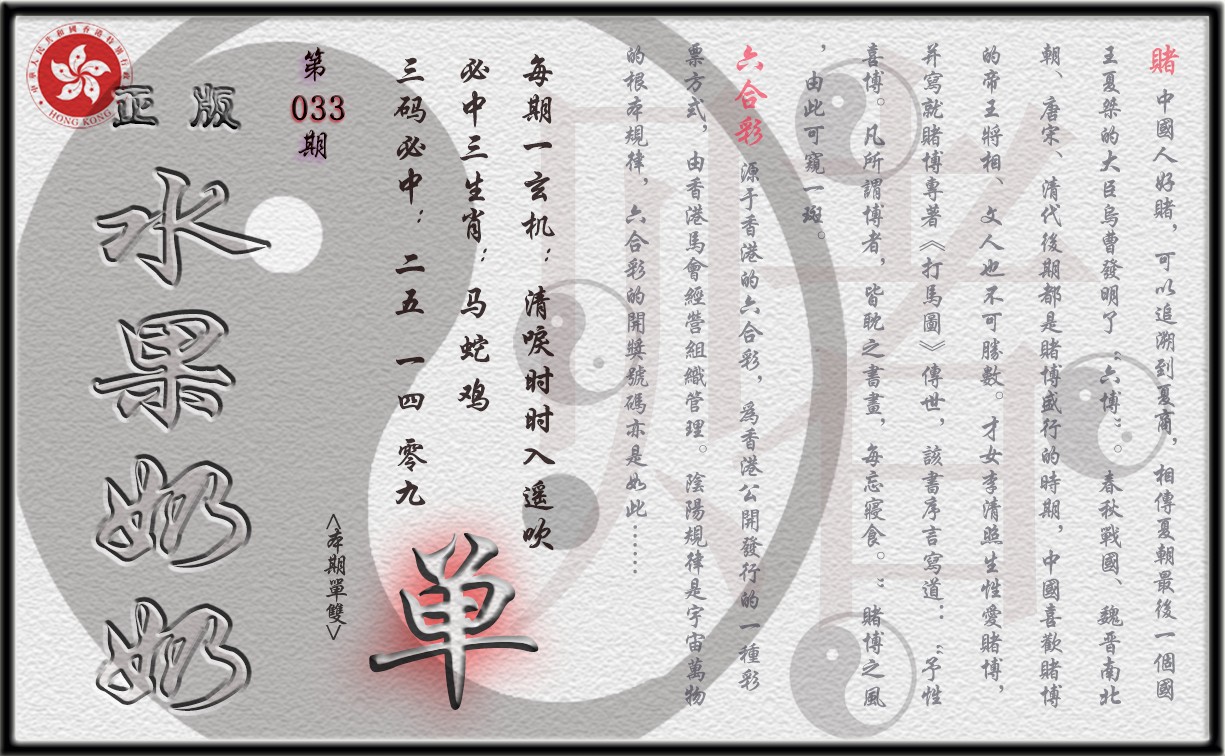 賭 中國人好賭，可以追溯到夏商，相傳夏朝最後一個國
王夏桀的大臣烏曹發明了“六博”。春秋戰國、魏晋南北
朝、唐宋、清代後期都是賭博盛行的時期，中國喜歡賭博
的帝王將相、文人也不可勝數。才女李清照生性愛賭博，
并寫就賭博專著《打馬圖》傳世，該書序言寫道：“予性
喜博。凡所謂博者，皆耽之書畫，每忘寢食。” 賭博之風
，由此可窺一斑。
六合彩 源于香港的六合彩，爲香港公開發行的一種彩
票方式，由香港馬會經營組織管理。陰陽規律是宇宙萬物
的根本規律，六合彩的開獎號碼亦是如此……
每期一玄机：清唳时时入遥吹
必中三生肖：马 蛇 鸡
三码必中：二五 一四 零九
单
<本期單雙>
第
033
期
正版
水果奶奶
中華人民共和國香港特別行政區
HONG KONG